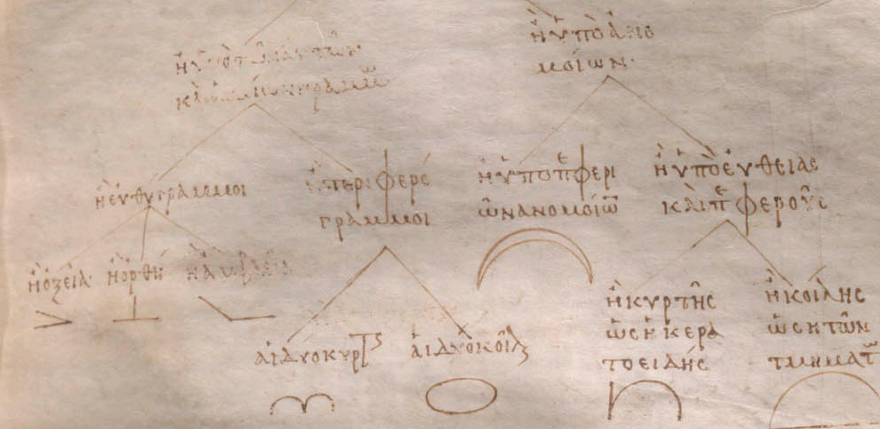 ἡ ὑπὸ ἀνο
μοίων·
ἢ εὐθύγραμμοι
περιφερό
γραμμοι
ἡ ὑπὸ
ῶν ἀνομοίω̅
ἡ ὑπὸ εὐθείας
καὶ π̅φεροῦς
ἡ ὀξεῖα
ἡ ὀρθὴ
ἡ ἀμβλεῖα
αἱ δύο κυρτ
αἱ δύο κοῖλ
ἡ κυρτῆς
ὡς ἡ κερα
τοειδής
ἡ κοίλης
ὡς ἡ τῶν
τμημάτ